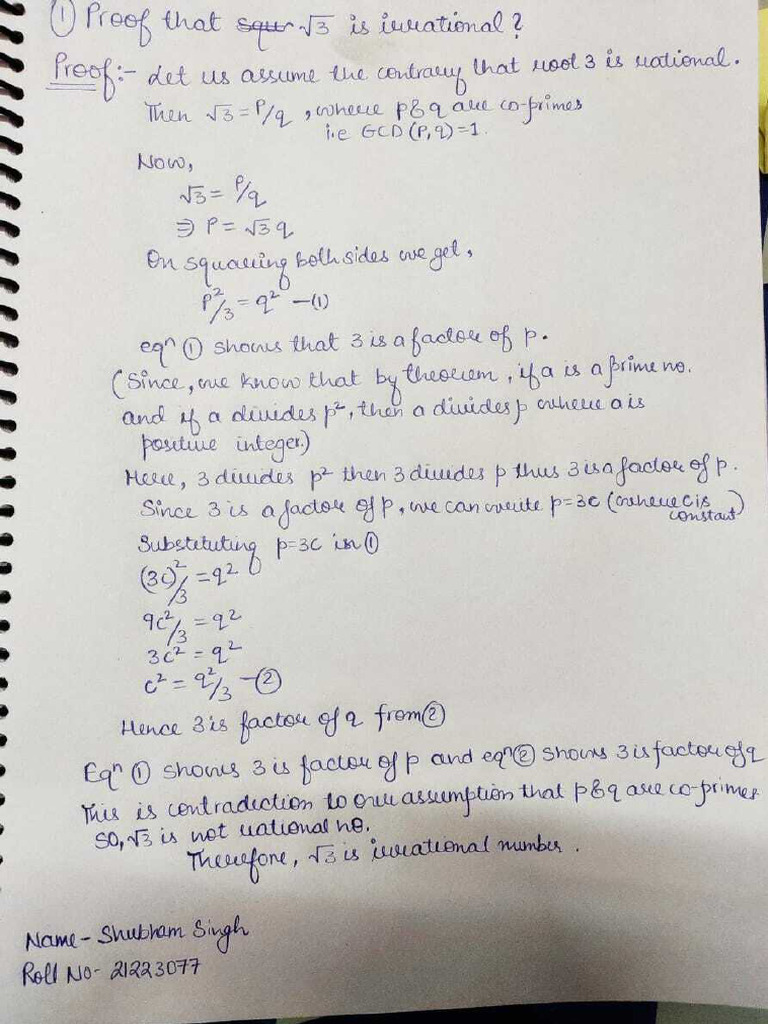 ① Proof that √3 is irrational?
Proof:- Let us assume the contrary that root 3 is rational.
Then √3 = P/q, where p & q are co-primes
i.e GCD (P, q) = 1.
Now,
√3 = P/q
⇒ P = √3 q
On squaring both sides we get,
P²/3 = q² —(1)
eqⁿ ① shows that 3 is a factor of p.
(Since, we know that by theorem, if a is a prime no.
and if a divides p², then a divides p where a is
positive integer.)
Here, 3 divides p² then 3 divides p thus 3 is a factor of p.
Since 3 is a factor of p, we can write p=3c (where c is
constant)
Substituting p=3c in ①
(3c)²/3 = q²
9c²/3 = q²
3c² = q²
c² = q²/3 —②
Hence 3 is factor of q from ②
Eqⁿ ① shows 3 is factor of p and eqⁿ ② shows 3 is factor of q
This is contradiction to our assumption that p & q are co-primes
SO, √3 is not rational no.
Therefore, √3 is irrational number.
Name - Shubham Singh
Roll No - 21223077